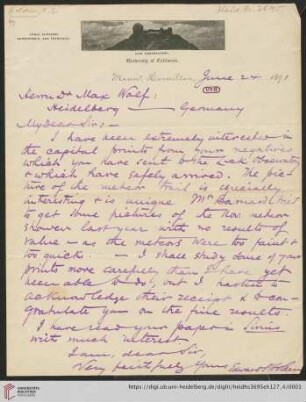 Heid. Hs. 3695
LICK OBSERVATORY,
University of California.
Mount Hamilton, June 24 1891
Herrn Dr Max Wolf:
Heidelberg — Germany
My Dear Sir:—
I have been extremely interested in
the capital prints from your negatives
which you have sent to the Lick Observatory
& which have safely arrived. The pic-
ture of the meteor trail is specially
interesting & is unique Mr Barnard tried
to get some pictures of the Nov. meteor
shower last year with no results of
value — as the meteors were too faint &
too quick. — I shall study some of your
prints more carefully than I have yet
been able to do, but I hasten to
acknowledge their receipt & to con-
gratulate you on the fine results.
I have read your paper in Sirius
with much interest.
I am, dear Sir,
Very faithfully yours Edward S. Holden
https://digi.ub.uni-heidelberg.de/diglit/heidhs3695eh127_4/0001